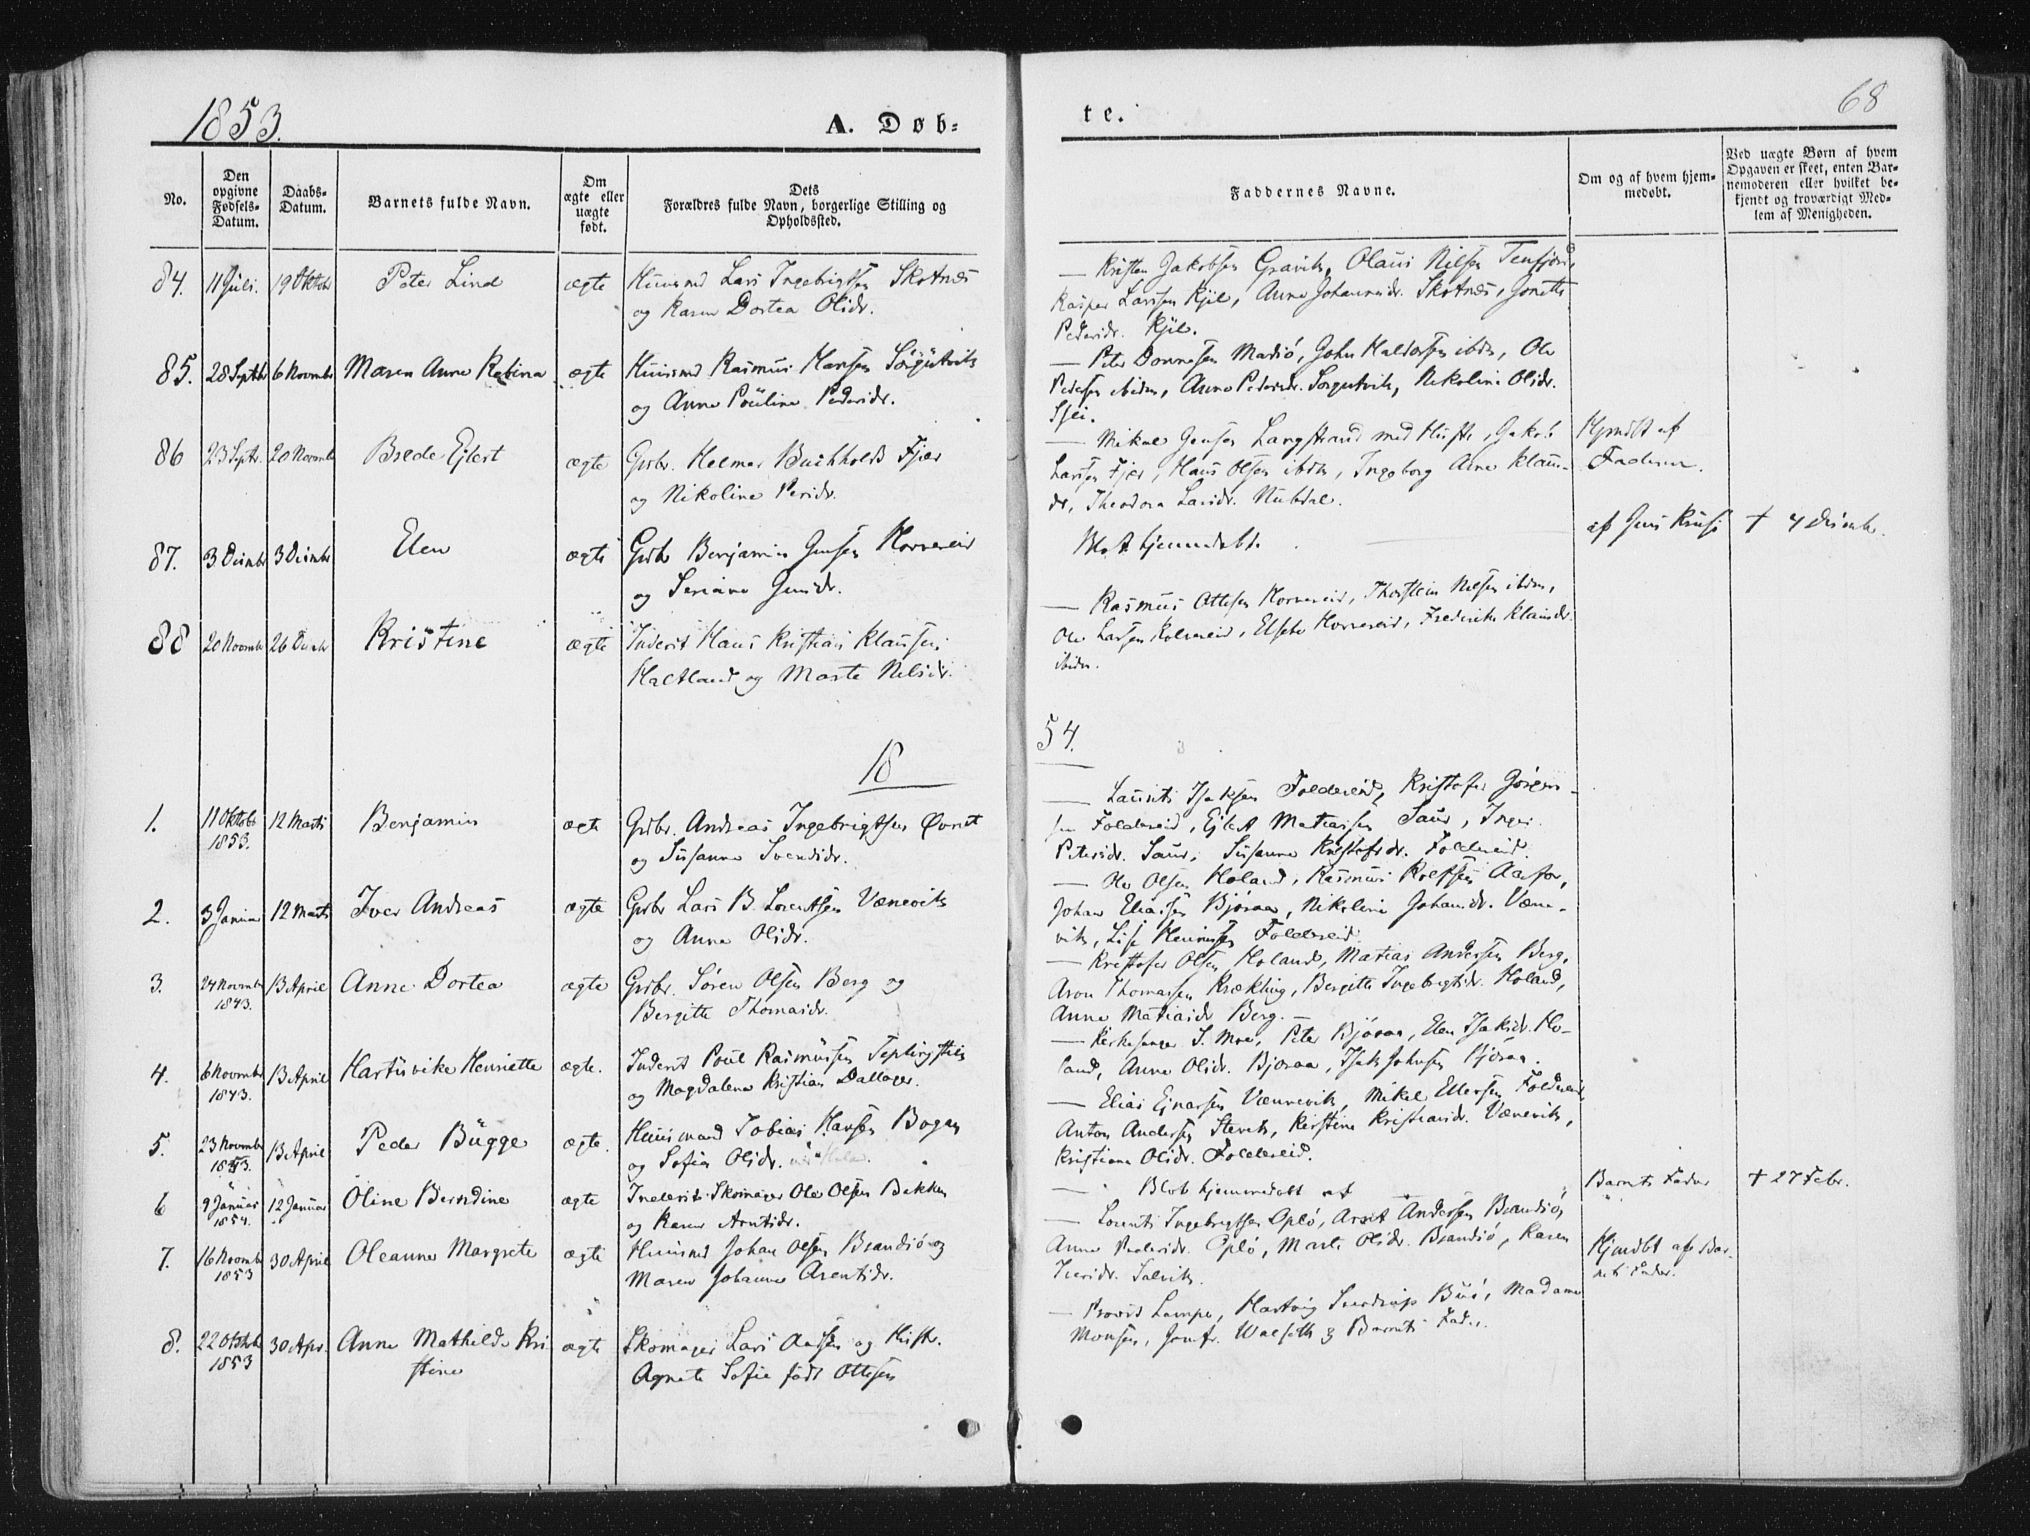 1853.
A. Døb-
te.
68
No.
Den opgivne Fødsels-Datum.
Daabs-Datum.
Barnets fulde Navn.
Om ægte eller uægte født.
Dets
Forældres fulde Navn, borgerlige Stilling og
Opholdssted.
Faddernes Navne.
Om og af hvem hjem-
medøbt.
Ved uægte Børn af hvem
Opgaven er skeet, enten Bar-
nemoderen eller hvilket be-
kjendt og troværdigt Med-
lem af Menigheden.
84. 11 Juli. 19 Oktobr Peter Lind ægte Huusmd Lars Ingebrigtsen Skotnes
og Karen Dortea Olidr.
— Kristen Jakobsen Gravik, Olaus Nilsen Tenfjord,
Kasper Larssen Kjil, Anne Johannesdr. Skotnes, Jonette
Pedersdr. Kjil.
85. 28 Septbr 6 Novembr Maren Anne Rebina ægte Huusmd Rasmus Hansen Sørgutvik
og Anne Pouline Pedersdr.
— Peter Donnesen Madsø, John Haldorsen ibdn, Ole
Pedersen ibidem, Anne Pedersdr. Sørgutvik, Nikoline Olidr.
86 23 Septr. 20 Novembr Brede Ejlert ægte Grdbr. Helmer Buchholdt Fjær
og Nikoline Persdr.
— Mikal Jensen Langstrand med Hustr, Jakob
Larsen Fjær, Hans Olsen ibdn, Ingeborg Ane Klaus-
dr, Theodora Larsdr. Nubdal.
Hjmdbt af
Faderen.
87. 3 Decembr 3 Decembr Elen ægte Grdbr Benjamin Jensen Horvereid
og Seriane Jensdr.
Blot hjemmedøbt.
af Jens Kruse
† 4 Decembr.
88 20 Novembr 26 Decembr Kristine ægte Inderst Hans Kristian Klausen
Haltland og Marte Nilsdr.
— Rasmus Ottesen Horvereid, Thorstein Nilsen ibdn,
Ole Larsen Kolvereid, Elsebe Horvereid, Frederikke Klausdr.
ibidm.
18
54.
1. 11 Oktobr 12 Marts Benjamin ægte Grdbr. Andreas Ingebrigtsen Øvret
1853.
og Susanne Svendsdr.
— Laurits Isaksen Foldereid, Kristofer Jörgen-
sen Foldereid, Ejlert Matiassen Saur, Inger
Petersdr. Saur, Susanne Kristofersdr. Foldereid.
2. 3 Januar 12 Marts Iver Andreas ægte Grdbr Lars B. Lorentsen Vænevik
og Anne Olidr.
— Ole Olsen Holand, Rasmus Rolfsen Aafor,
Johan Eliassen Bjøraa, Nikoline Johansdr. Væne-
vik, Lise Foldereid
3. 24 Novembr 13 April Anne Dortea ægte Grdbr. Søren Olsen Berg og
1843.
Bergitte Thomasdr.
— Kristofer Olsen Holand, Matias Andersen Berg,
Aron Thomassen Krækling, Bergitte Ingebrigtsdr. Holand,
Anne Matiasdr Berg.
4. 6 Novembr 13 April Hartuvike Henriette ægte. Inderst Poul Rasmussen Teplingstein
1843.
og Magdalene Kristian Dallager.
— Kirkesanger S. Moe, Peter Björaa, Elen Isaksdr. Ho-
land, Anne Olidr. Björaa, Isak Johnsen Björaa.
5. 23 Novembr 13 April Peder Bügge ægte. Huusmand Tobias Hansen Bogen
1853.
og Sofia Olidr.
— Elias Ejnarsen Vænnevik, Mikel Ellersen Foldereid
Anton Andersen Stevik, Kirstine Kristiansdr. Vænevik,
Kristiane Olidr. Foldereid.
6 9 Januar 12 Januar Oline Berndine ægte Inderst Skomager Ole Olsen Bakken
1854.
og Karen Arntsdr.
— Blot hjemmedøbt af
Barnets Fader
† 27 Febr.
7. 16 Novembr 30 April Oleanne Margrete ægte Huusmd Johan Olsen Brandsø og
1853
Maren Johanne Arentsdr.
— Lorents Ingebrigtsen Oplø, Arnt Andersen Brandsø,
Anne Pedersdr. Oplø, Marte Olidr. Brandsø, Karen
Iversdr. Salvik.
Hjmdbt af Bar-
nets Fader.
8. 22 Oktobr 30 Apr. Anne Mathilde Kri- ægte Skomager Lars Aassen og Hustr.
1853
stine
Agnete Sofie født Ottesen
— Provst Lampe, Hartvig Sverdrup Buø, Madame
Monsen, Jomfr. Walseth og Barnets Fader.